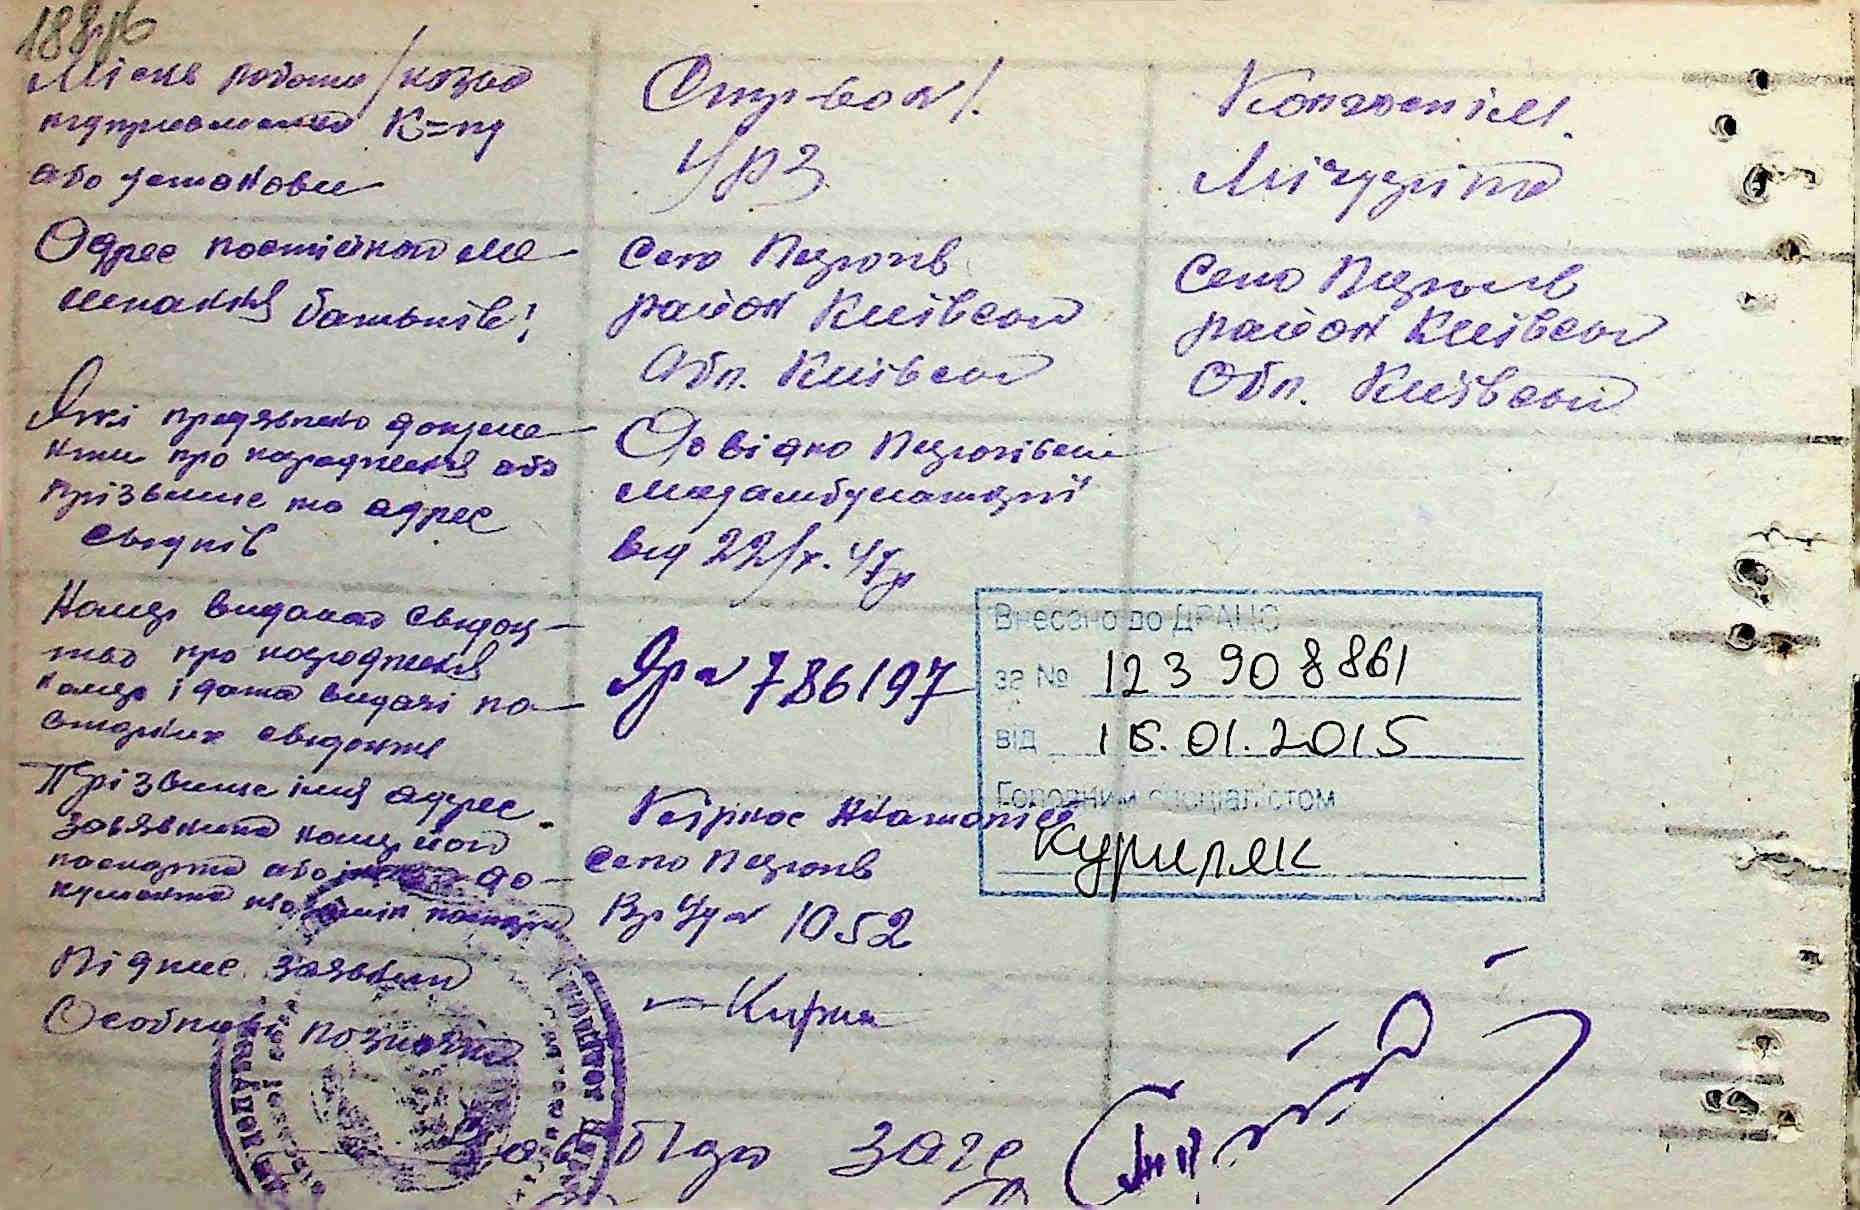 188
Місце роботи / назва
підприємства
або установи
Стр-вод
УРЗ
Колгосп ім.
Мічуріна
Адрес постійного ме
шкання батьків:
Село Пирогів
район Київської
Обл. Київської
Село Пирогів
район Київської
Обл. Київської
Які предявлено докуме
нти про народження або
прізвище та адрес
свідків
Довідка Пирогівської
медамбулаторії
від 22/X. 47р
Номер виданого свідоц
тва про народження
номер і дата видачі по
вторних свідоцтв
№ 786197
Внесено до ДРАЦС
за № 123 90 8861
від 16.01.2015
Головним спеціалістом
Куриляк
Прізвище імя адрес
заявника номер його
паспорта або до
кумента паспорт
Село Пирогів
№ 1052
Підпис заявника
Особливі позначки
Зав. бюро загс